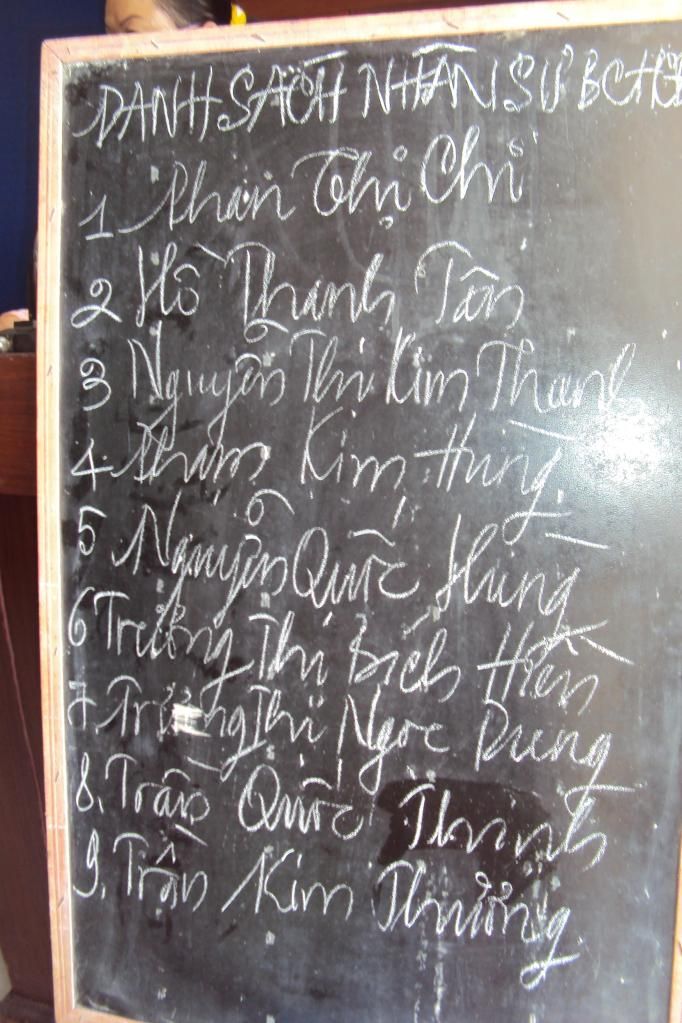 DANH SÁCH NHÂN SỰ BCH
1 Phan Thị Chi
2 Hồ Thanh Tân
3 Nguyễn Thị Kim Thanh
4. Phạm Kim Hùng
5 Nguyễn Quốc Hùng
6 Trương Thị Bích Hiền
7 Trương Thị Ngọc Dung
8. Trần Quốc Thịnh
9. Trần Kim Thương